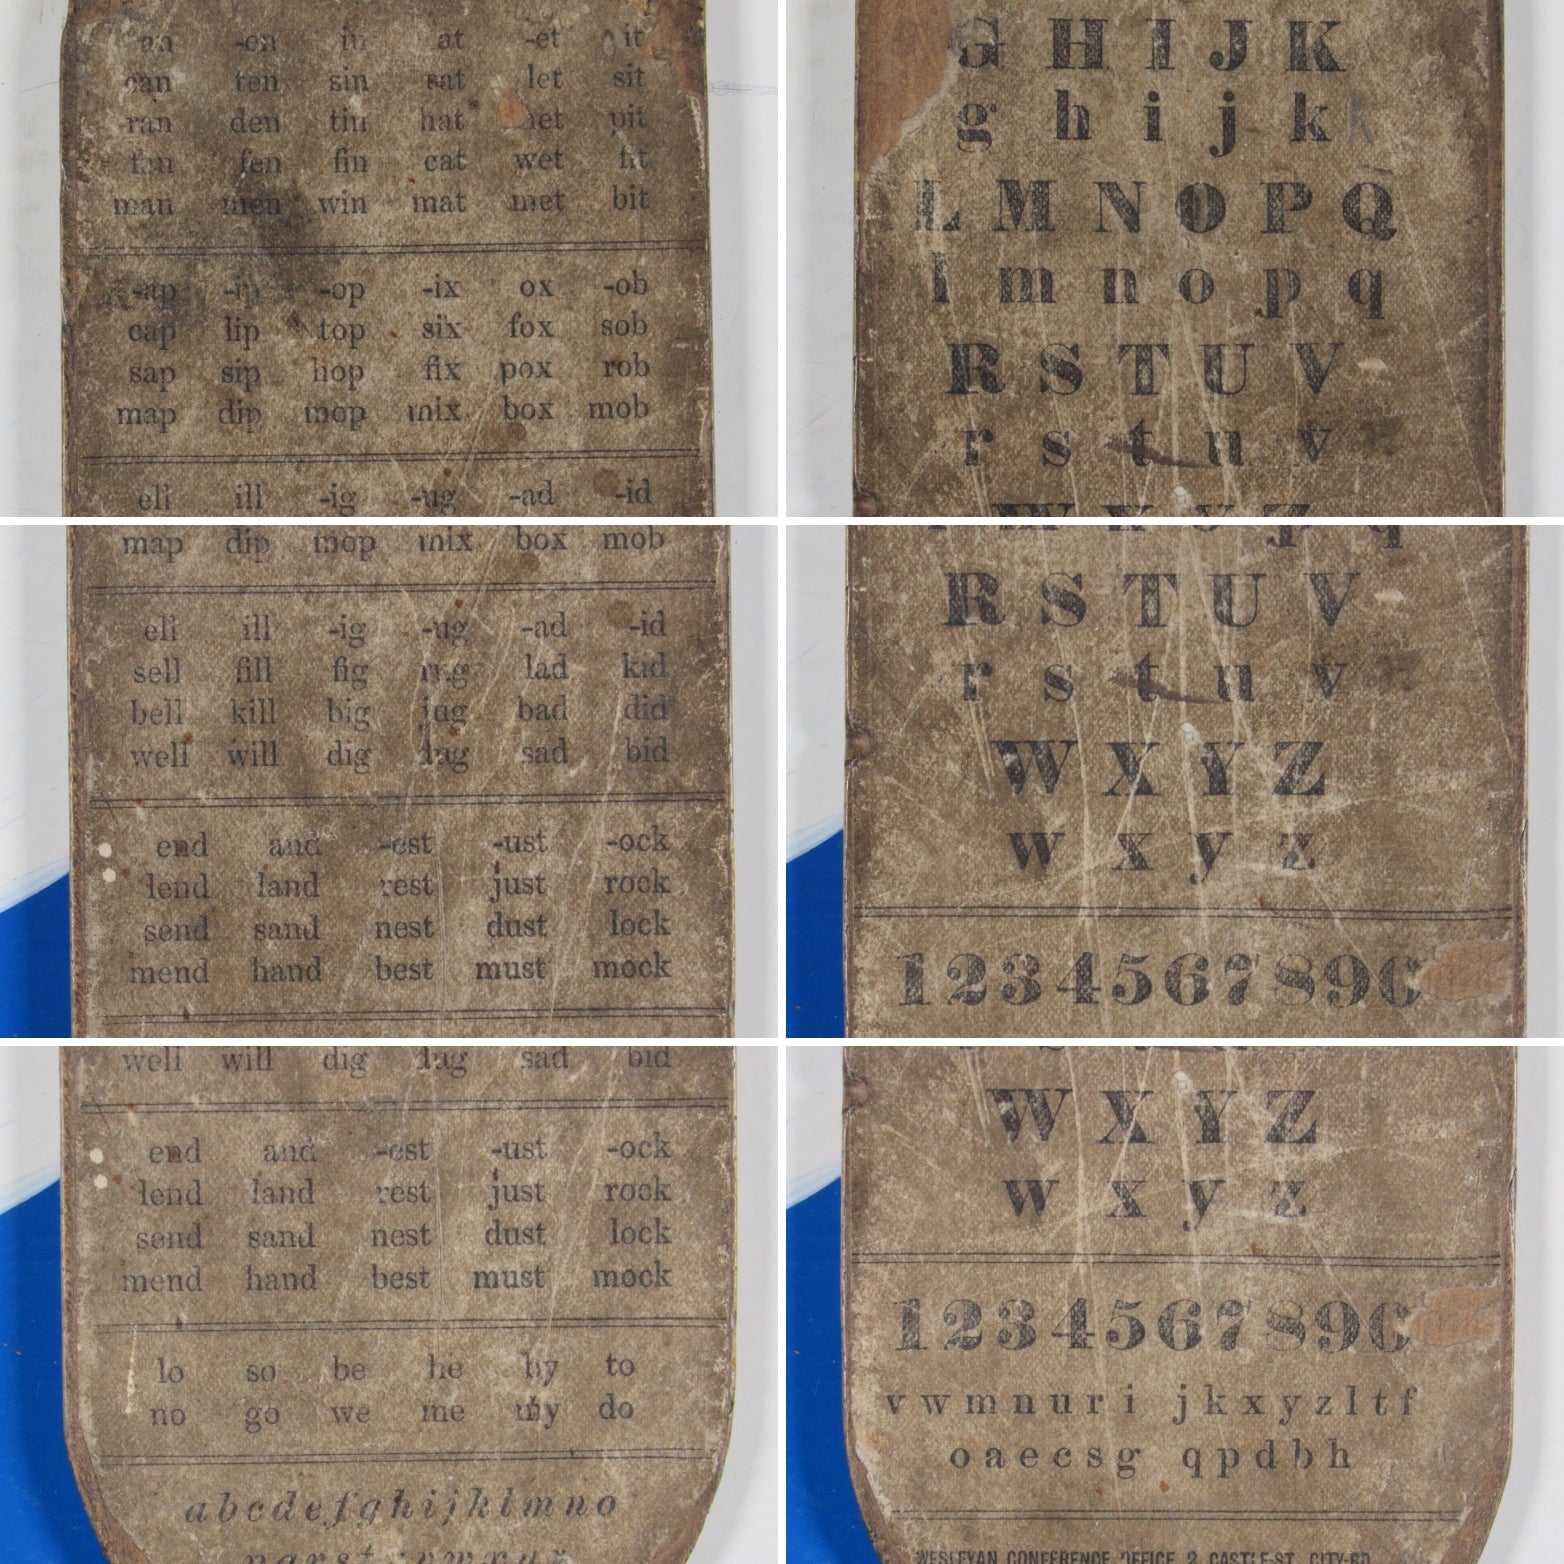 an -en in at -et it
can ten sin sat let sit
ran den tin hat pit
fan fen fin cat wet fit
man men win mat met bit
-ap -ip -op -ix ox -ob
cap lip top six fox sob
sap sip hop fix pox rob
map dip mop mix box mob
ell ill -ig -ug -ad -id
G H I J K
g h i j k
L M N O P Q
l m n o p q
R S T U V
r s t u v
W X Y Z
map dip mop mix box mob
ell ill -ig -ug -ad -id
sell fill fig rug lad kid
bell kill big jug bad did
well will dig dug sad bid
end and -est -ust -ock
lend land rest just rock
send sand nest dust lock
mend hand best must mock
R S T U V
r s t u v
W X Y Z
w x y z
1 2 3 4 5 6 7 8 9 0
well will dig dug sad bid
end and -est -ust -ock
lend land rest just rock
send sand nest dust lock
mend hand best must mock
lo so be he by to
no go we me my do
a b c d e f g h i j k l m n o
W X Y Z
w x y z
1 2 3 4 5 6 7 8 9 0
v w m n u r i j k x y z l t f
o a e c s g q p d b h
WESLEYAN CONFERENCE OFFICE 2 CASTLE-ST CITY-RD